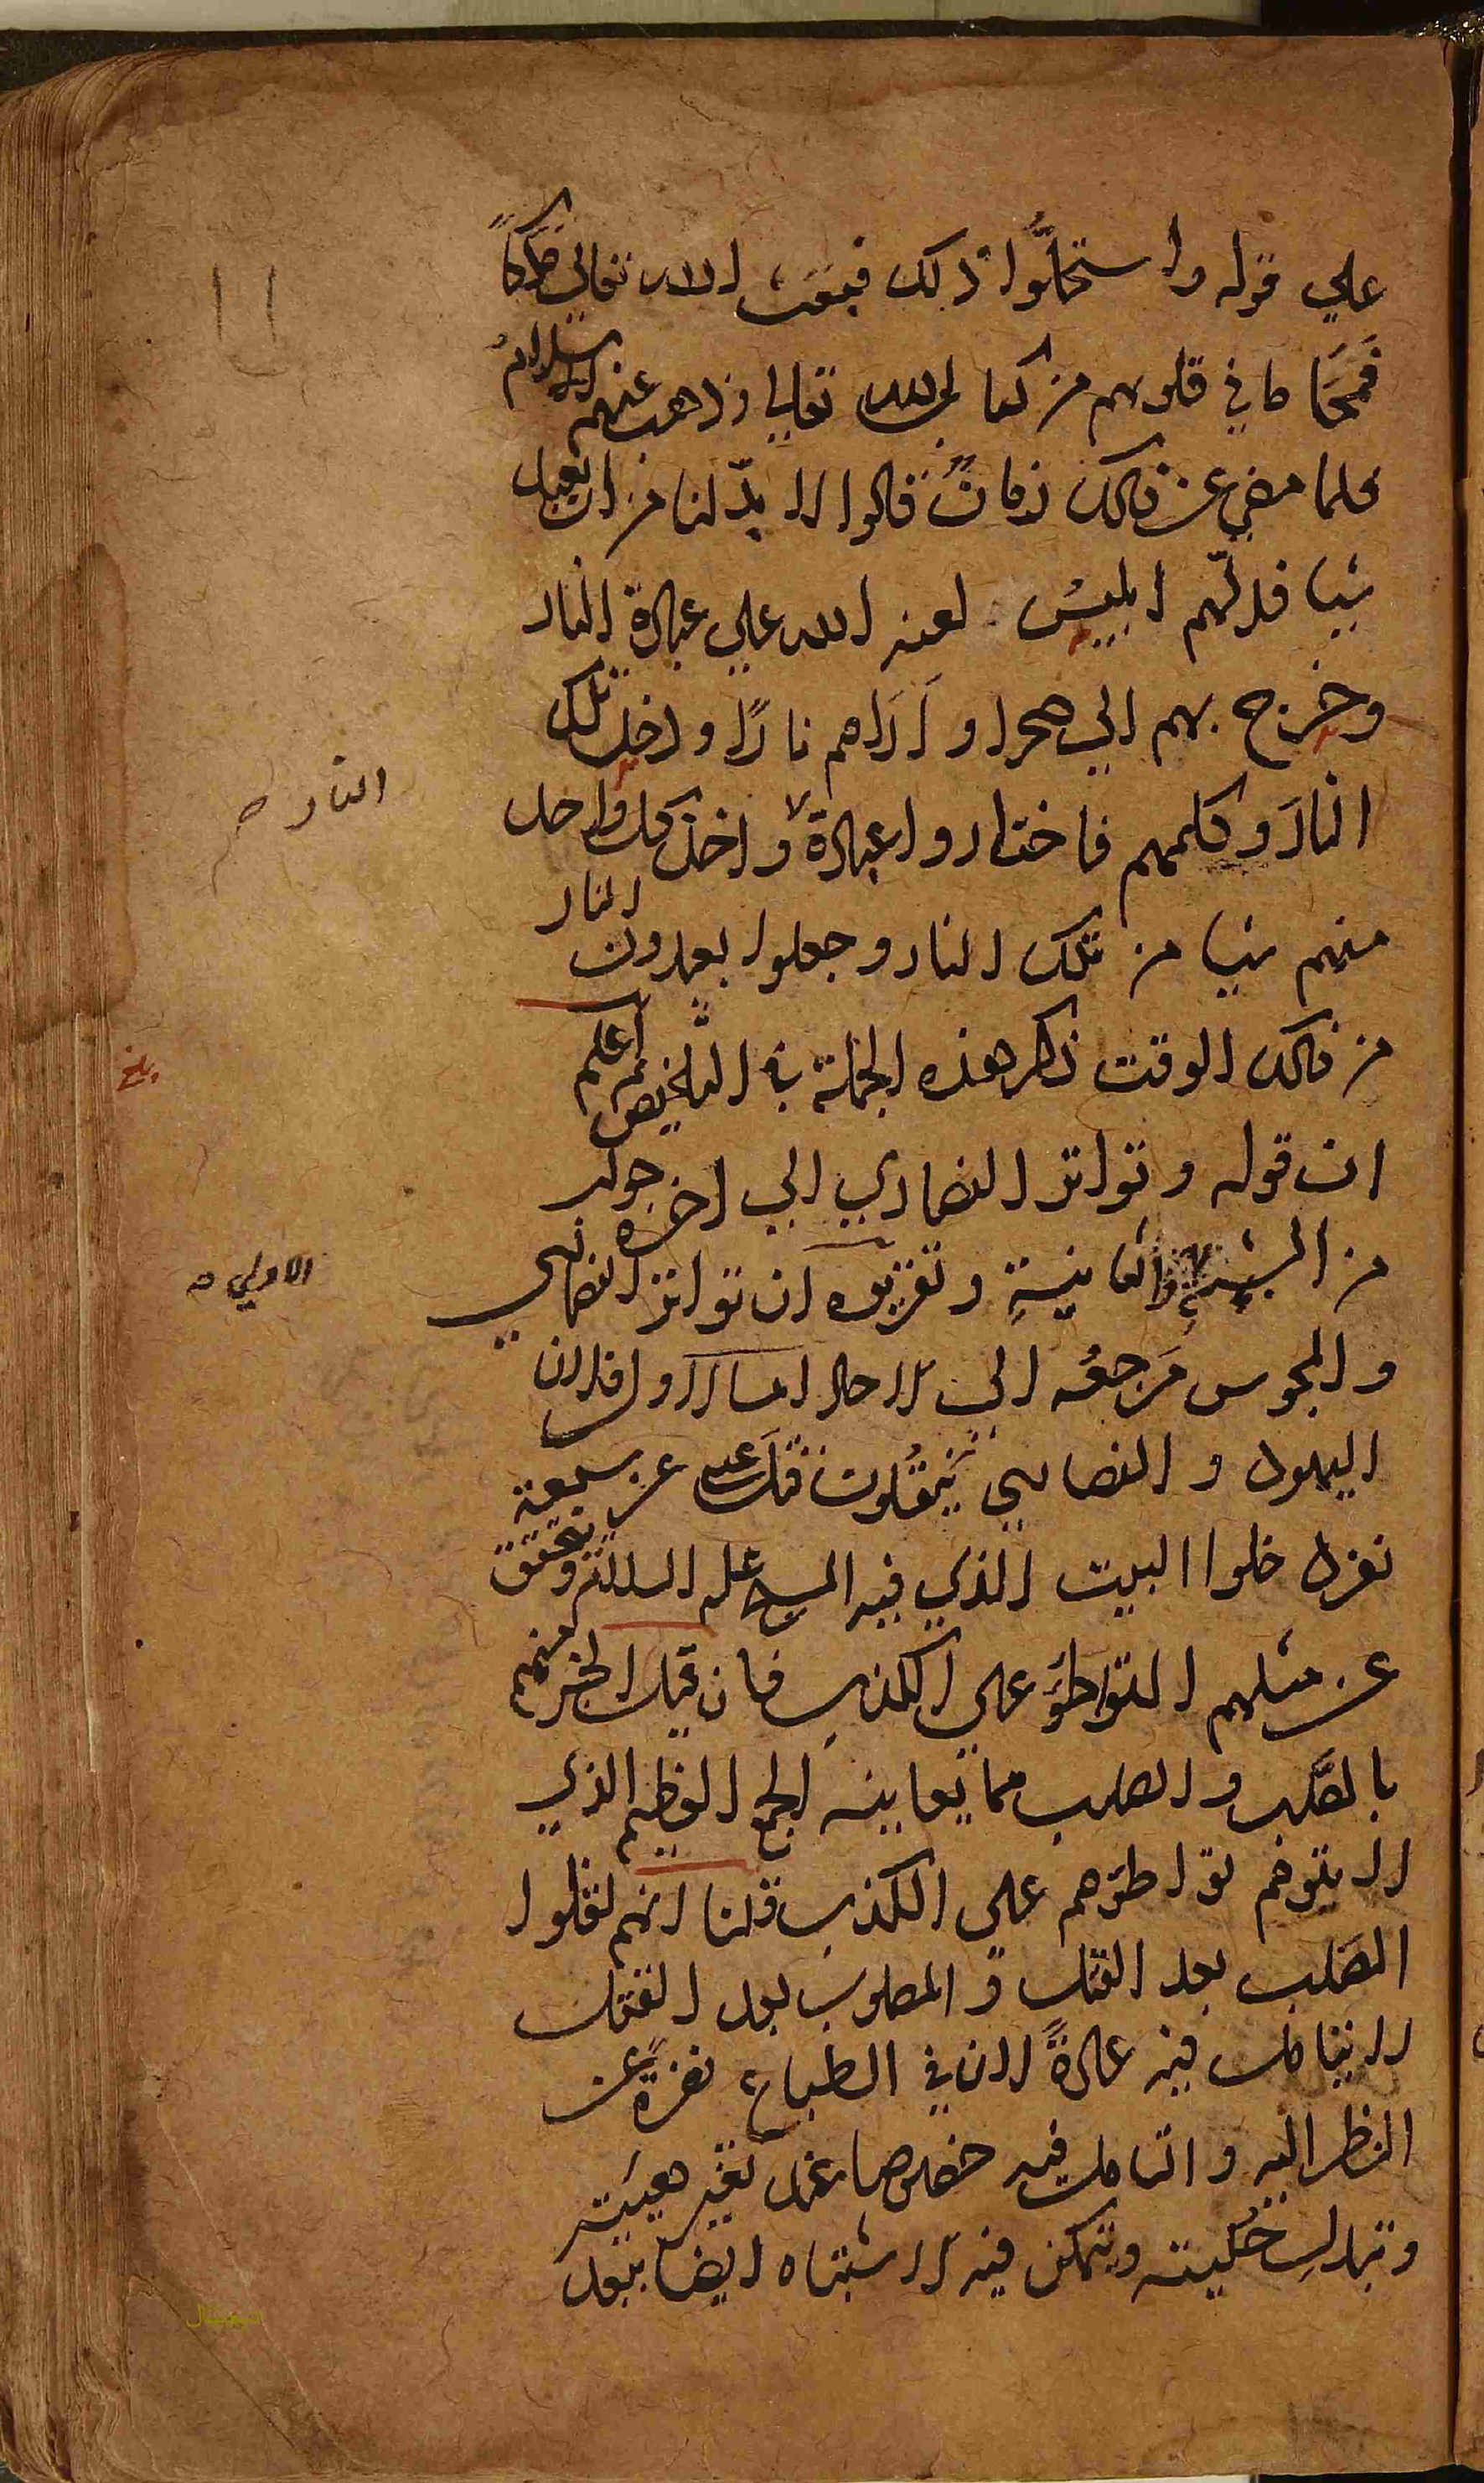 علي قوله واستحلّوا ذلك فبعث الله تعالي ملكاً
فمحَا ما في قلوبهم من كتاب الله تعالي وذهب عنهم الاسلام
فلما مضي عن ذلك زمانٌ قالوا لا بدّ لنا من ان نعبد
شيا فدلّهم ابليس لعنه الله علي عبادة النار
وخرج بهم الي صحرا و اَرَاهم نارًا ودخل تلك
النارَ وكلمهم فاختاروا عبادة واخذ كل واحد
النار صح
منهم شيا من تلك النار وجعلوا يعبدون النار
من ذلك الوقت ذكر هذه الجملة في التلخيص ثم اعلم
بلغ
ان قوله وتواتر النصاري الي اخره جواب
من الشبهة الثانية وتقريره ان تواتر النصاري
الاولي صح
والمجوس مَرجعه الي الاحاد اما الاول فلان
اليهود والنصاري يَنقُلون قتل عيسي عن سبعة
نفر دخلوا البيت الذي فيه المسيح عليه السلام ويتحقق
عن مثلهم التواطؤ علي الكذب فان قيل الخبر منهم
بالصَّلب والصلب مما يعاينه الجمع العظيم الذي
لا يتوهم تواطؤهم علي الكذب قلنا انهم نقلوا
الصَلب بعد القتل والمصلوب بعد القتل
لا يتامل فيه عادةً لان في الطباع نفرةً عن
النظر اليه والتامل فيه خصوصا عند تغير هيئته
وتبدل حُليته ويتمكن فيه الاشتباه ايضا ببعد